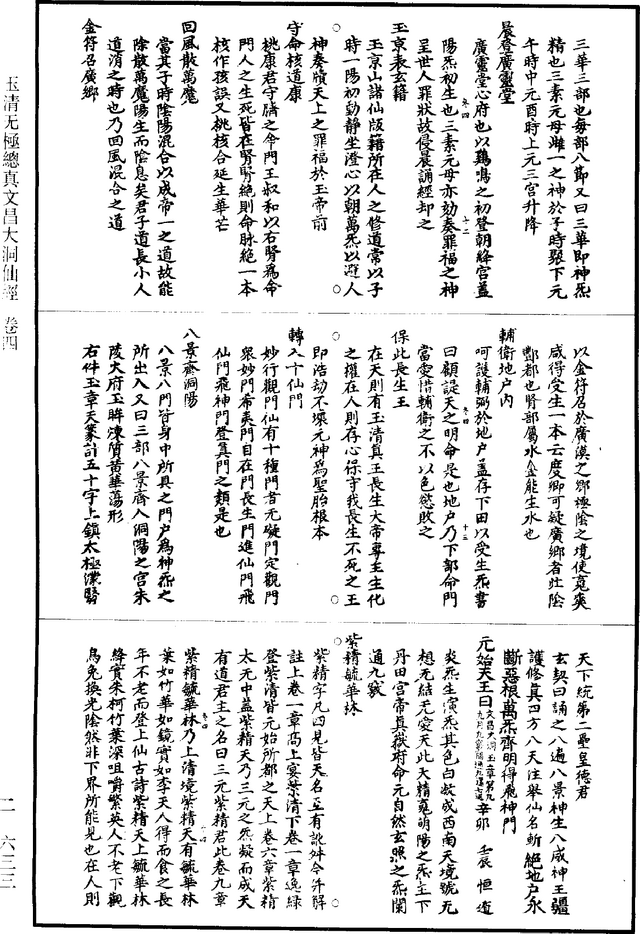 三華三部也每部八節又曰三華即神炁
精也三素元母雌一之神於子時聚下元
午時中元酉時上元三宮升降
晨登廣靈堂
廣靈堂心府也以鷄鳴之初登朝絳宮蓋
陽炁初生也三素元母亦劾奏罪福之神
呈世人罪狀故侵晨誦經却之
玉京表玄籍
玉京山諸仙版籍所在人之修道常以子
時一陽初動靜坐澄心以朝萬炁以避人
神奏牘天上之罪福於玉帝前
守命核道康
桃康君守臍之命門王叔和以右腎為命
門人之生死皆在腎腎絕則命脉絕一本
核作孩誤又桃核合延生華芒
回風散萬魔
當其子時陰陽混合以成帝一之道故能
除散萬魔陽生而陰息矣君子道長小人
道消之時也乃回風混合之道
金符召廣鄉
卷四
十二
以金符召於廣漠之鄉極陰之境使䰟爽
咸得受生一本云度鄉可疑廣鄉者牡陰
酆都也腎部屬水金能生水也
輔衛地户内
呵護輔弼於地户蓋存下田以受生炁書
曰顧諟天之明命是也地户乃下部命門
當愛惜輔衛之不以色慾敗之
保此長生王
在天則有玉清真王長生大帝尊王主化
之權在人則存心保守我長生不死之王
即浩劫不壞元神為聖胎根本
轉入十仙門
妙行觀門仙有十種門者无礙門定觀門
衆妙門希夷門自在門長生門進仙門飛
仙門飛神門登真門之類是也
八景齋洞陽
八景八門皆身中所具之門户為神炁之
所出入又曰三部八景齋入洞陽之宮朱
陵大府玉眸煉質黄華蕩形
右件玉章天篆計五十字上鎮太極濛翳
卷四
十三
天下統第二聖皇德君
玄契曰誦之八遍八景神生八威神王疆
護修真四方八天注舉仙名斬絕地户永
斷惡根萬炁齊明得飛神門
元始天王曰
辛卯 壬辰 恒道
炎炁生演炁其色白故成西南天境號无
想无結无愛天此天精䰟萌陽之炁主下
丹田宮帝真嶽府命元自然玄照之炁関
通九竅
紫精毓華林
紫精字凡四見皆天名互有訛舛今併解
註上卷一章髙上宴紫清下卷一章逸緑
登紫清皆元始所都之天上卷六章紫精
太无中蓋紫精天乃三元之炁凝而成天
有道君主之名曰三元紫精君此卷九章
紫精毓華林乃上清境紫精天有毓華林
葉如竹華如鏡實如李天人得而食之長
年不老而登上仙古詩紫精天上毓華林
絳實朱柯竹葉深咀嚼繁英人不老下觀
烏兔換光陰然非下界所能見也在人則
卷四
十四
玉清无極總真文昌大洞仙經 卷四
二—六三三